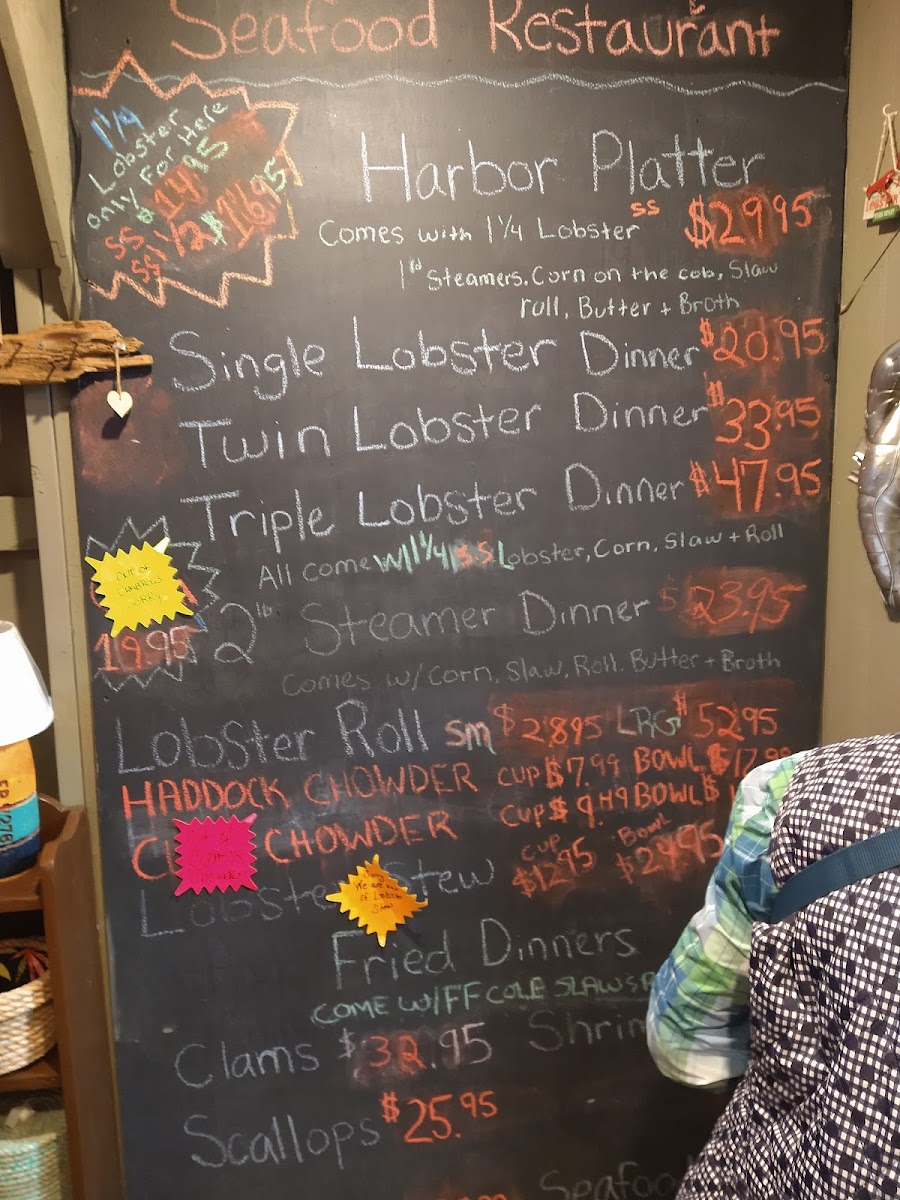 Seafood Restaurant
1 1/4
Lobster
only For Here
SS $14.95
SS 1 1/2 $16.95
Harbor Platter
Comes with 1 1/4 Lobster SS $29.95
1 lb Steamers. Corn on the cob, Slaw
roll, Butter + Broth
Single Lobster Dinner $20.95
Twin Lobster Dinner $33.95
Triple Lobster Dinner $47.95
All come w/ 1 1/4 SS Lobster, Corn, Slaw + Roll
OUT OF
SORRY
19.95
2 lb. Steamer Dinner $23.95
Comes w/Corn, Slaw, Roll, Butter + Broth
Lobster Roll sm $28.95 LRG $52.95
HADDOCK CHOWDER CUP $7.99 BOWL $12.99
CHOWDER CUP $9.49 BOWL $
Lobster Stew CUP $12.95 Bowl $24.95
Sorry
We are out
of Lobster
Stew
Fried Dinners
COME W/FF COLE SLAW &
Clams $32.95 Shrim
Scallops $25.95
Seafood